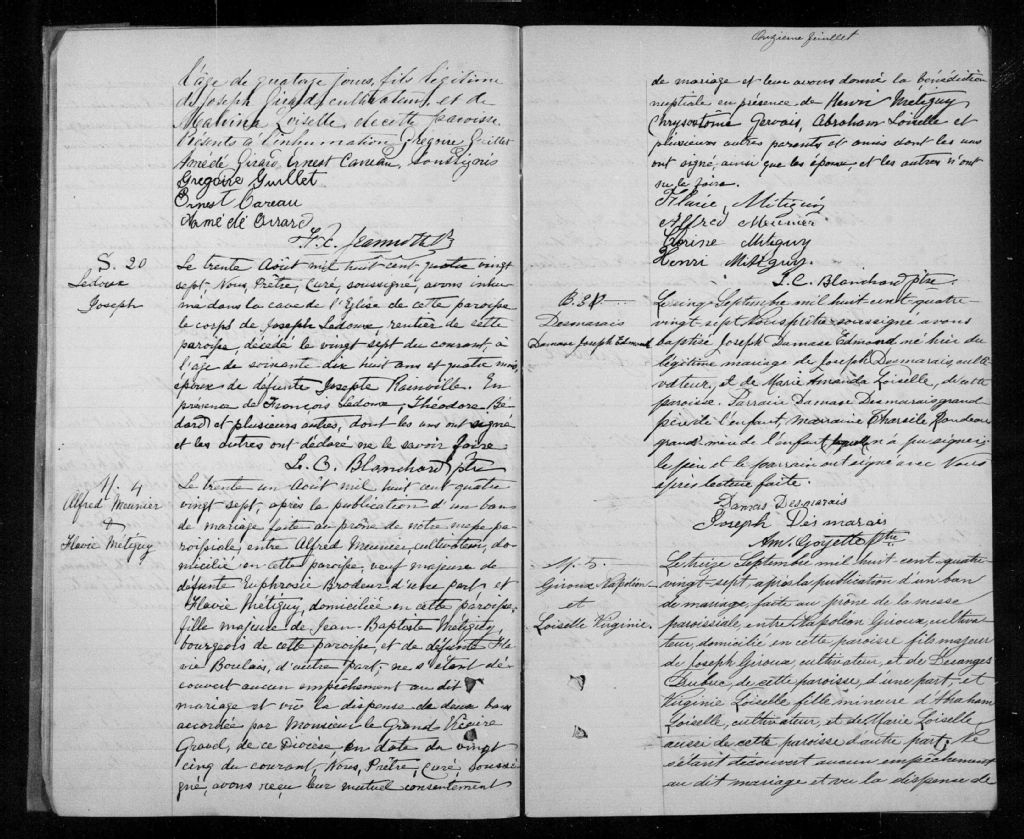 l'âge de quatorze jours, fils légitime
de Joseph Girard, cultivateur, et de
Malvina Loiselle, de cette paroisse.
Présents à l'inhumation, Grégoire Guillet
Amédé Girard, Ernest Careau, soussignés
Gregoire Guillet
Ernest Careau
Amé dé Girard
S. 20
Ledoux
Joseph
Le trente Août mil huit cent quatre vingt
sept, Nous, Prêtre, Curé, soussigné, avons inhu
mé dans la cave de l'Eglise de cette paroisse
le corps de Joseph Ledoux rentier de cette
paroisse, décédé le vingt sept du courant, à
l'âge de soixante dix huit ans et quatre mois,
époux de défunte Josepte Rainville. En
présence de François Ledoux, Théodore Bé-
dard et plusieurs autres, dont les uns ont signé
et les autres ont déclaré ne le savoir faire
L. C. Blanchard ptre
M. 4
Alfred Meunier
&
Flavie Métiguy
Le trente un Août mil huit cent quatre
vingt sept, après la publication d'un ban
de mariage faite au prône de notre messe pa
roissiale, entre Alfred Meunier, cultivateur, do-
micilié en cette paroisse, veuf majeur de
défunte Euphrosie Brodeur d'une part et
Flavie Métiguy, domiciliée en cette paroisse,
fille majeure de Jean-Baptiste Métiguy,
bourgeois de cette paroisse, et de défunte Fla
vie Boulais, d'autre part; ne s'étant dé
couvert aucun empêchement au dit
mariage et vu la dispense de deux bans
accordée par Monsieur le Grand Vicaire
Gravel, de ce Diocèse, en date du vingt
cinq du courant, Nous, Prêtre, Curé, soussi
gné, avons reçu leur mutuel consentement
Onzième feuillet
de mariage et leur avons donné la bénédiction
nuptiale en présence de Henri Métiguy
Chrysostôme Gervais, Abraham Loiselle et
plusieurs autres parents et amis dont les uns
ont signé, ainsi que les époux, et les autres n'ont
su le faire.
Flavie Mitiguy
Alfred Meunier
Corine Mitiguy
Henri Mitiguy
L. C. Blanchard ptre.
Desmarais
Damase Joseph Edmond
Le cinq Septembre mil huit cent quatre-
vingt-sept Nous prêtre soussigné avons
baptisé Joseph Damase Edmond né hier du
légitime mariage de Joseph Desmarais, culti-
vateur, et de Marie Amanda Loiselle, de cette
paroisse. Parrain Damase Desmarais grand
père de l'enfant, marraine Tharsile Rondeau
grand'mère de l'enfant n'a pu signer;
le père et le parrain ont signé avec Nous
après lecture faite.
Damas Desmarais
Joseph Desmarais
Am. Goyette Ptre
M. 5.
Giroux Napoléon
et
Loiselle Virginie.
Le treize Septembre mil huit cent quatre
vingt-sept après la publication d'un ban
de mariage faite au prône de la messe
paroissiale entre Napoléon Giroux, cultiva-
teur, domicilié en cette paroisse fils majeur
de Joseph Giroux, cultivateur, et de Desanges
Dubuc, de cette paroisse, d'une part, et
Virginie Loiselle fille mineure d'Abraham
Loiselle, cultivateur, et de Marie Loiselle,
aussi de cette paroisse d'autre part; Ne
s'étant découvert aucun empêchement
au dit mariage et vu la dispense de